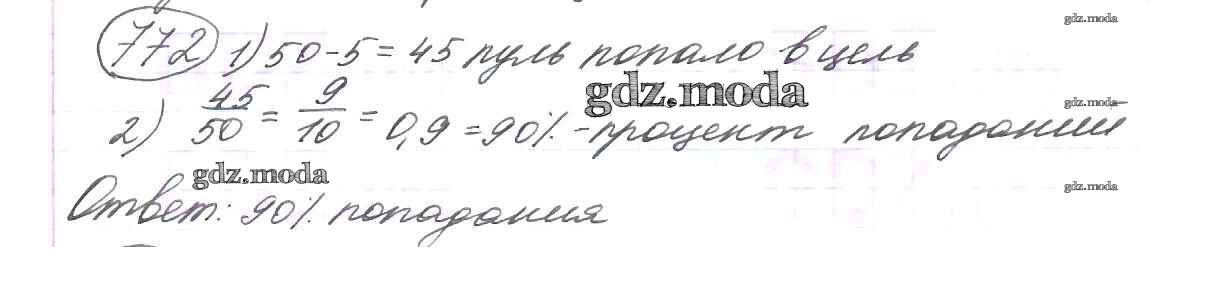 gdz.moda
772 1) 50-5=45 пуль попало в цель
gdz.moda
gdz.moda
2) 45/50 = 9/10 = 0,9 = 90% - процент попаданий
gdz.moda
gdz.moda
Ответ: 90% попадания